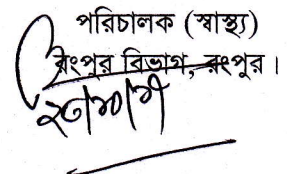 পরিচালক (স্বাস্থ্য)
রংপুর বিভাগ, রংপুর।